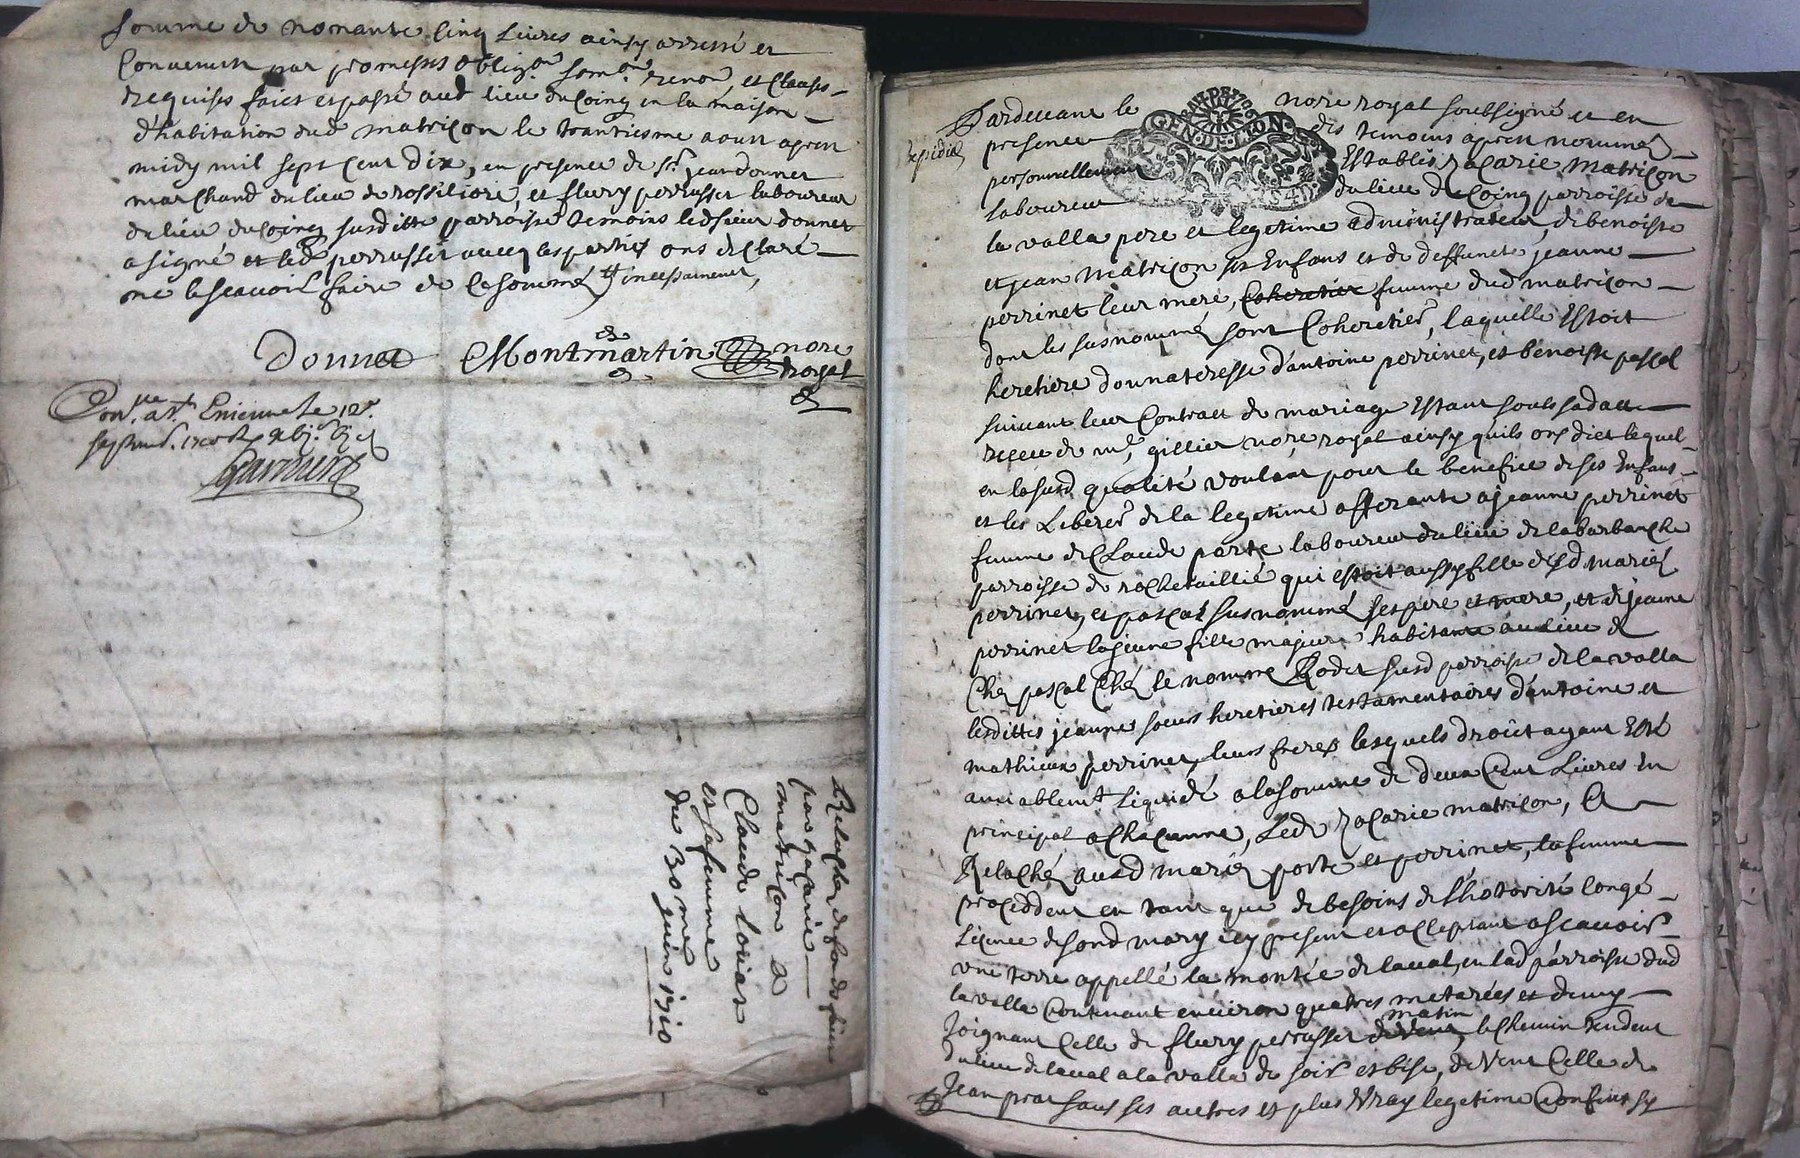 somme de nonante cinq livres ainsy arresté et
Convenu par promesses oblig.on som.on renon, et Clauses
requises faict et passé aud lieu du Coing en la maison
d'habitation dud matricon le trantiesme aoust apres
midy mil sept cent dix, en presence de Sr. jean donnet
marChand du lieu de rossiliore, et fleury perrusset laboureur
du lieu du Coing susditte parroisse temoins led sieur donnet
a signé et led perrusset avecq les parties ont declaré
ne le scavoir faire de ce sommé et incessamment,
Donnet Montmartin nore
royal
Con.lle a St. Etienne le 12e
septemb. 1710
RelaChe de fonds
par zacarie
matricon a
Claude
et sa femme
du 30me juin 1710
Pardevant le nore royal soubsigné et en
presence des temoins apres nommés
Expedié
personnellement Establis zacarie Matricon
laboureur du lieu du Coing parroisse de
la valla pere et legitime administrateur, de benoiste
et jean Matricon ses Enfans et de deffuncte jeanne
perrinet leur mere, Coheretier femme dud matricon
dont les susnommés sont Coheretiers, laquelle Estoit
heretiere donnateresse d'antoine perrinet, et benoiste pascal
suivant leur Contract de mariage Estant soubs sa datte
receu de me gillier nore royal ainsy quils ont dict lequel
en la susd qualité voulant pour le benefice de ses Enfans
et les Liberer de la legitime afferante a jeanne perrinet
femme de Claude porte laboureur du lieu de la barbanche
parroisse de rochetaillié qui estoit aussy fille desd mariés
perrinet, et pascal susnommés ses pere et mere, et de jeanne
perrinet la jeune fille majeure habitante au lieu de
Chez pascal Chez le nommé Rodet susd parroisse de la valla
lesdittes jeanne soeurs heretieres testamentaires d'antoine et
mathieu perrinet, leurs freres lesquels droits ayant Esté
amiablemt Liquidé a la somme de deux Cent Livres En
principal a Chacunne, Led zacarie matricon, a
RelaChé ausd mariés porte et perrinet, la femme
procedant en tant que de besoins de l'hotorité congé
Licence de sond mary icy present et acceptant a scavoir
une terre appellé la montée de laval, en lad parroisse dud
la valla Contenant environ quatres metarées et demy
matin
Joignant Celle de fleury perrusset de vent, le Chemin tendent
du lieu de laval a la valla de soir et bise, de vent Celle de
Jean prat sauf ses autres et plus vray legitime Confins sy